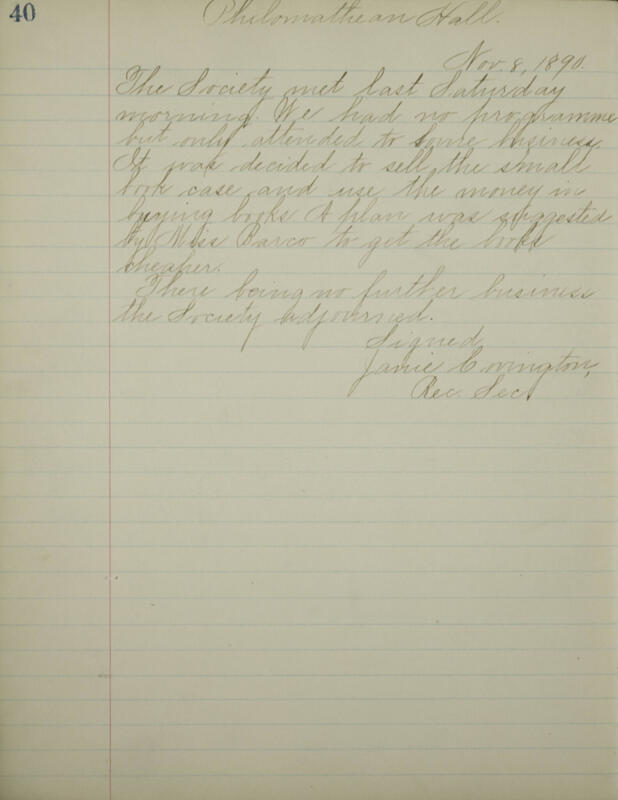 40
Philomathean Hall.
Nov. 8, 1890.
The Society met last Saturday
morning. We had no programme
but only attended to some business.
It was decided to sell the small
book case and use the money in
buying books. A plan was suggested
by Miss Barco to get the books
cheaper.
There being no further business
the Society adjourned.
Signed
Janie Covington,
Rec. Sec.